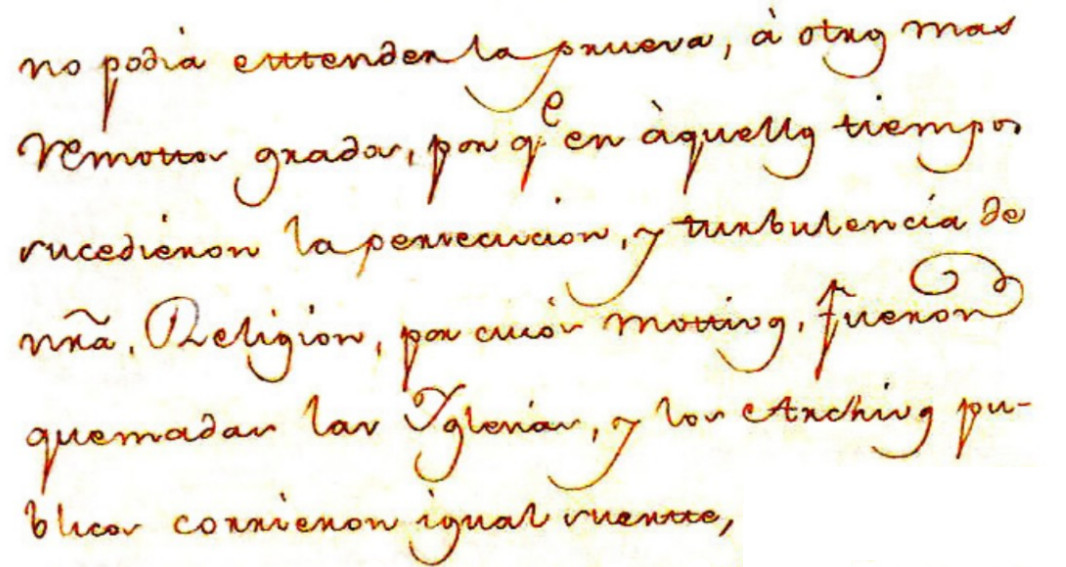 no podia etttender la prueva, à otros mas
remottos grados, por q^e en àquellos tiempos
sucedieron la persecucion, y turbulencia de
nr̃a. Religion, por cuios mottivos, fueron
quemadas las Yglesias, y los Archivos pu-
blicos corrieron igual suertte,